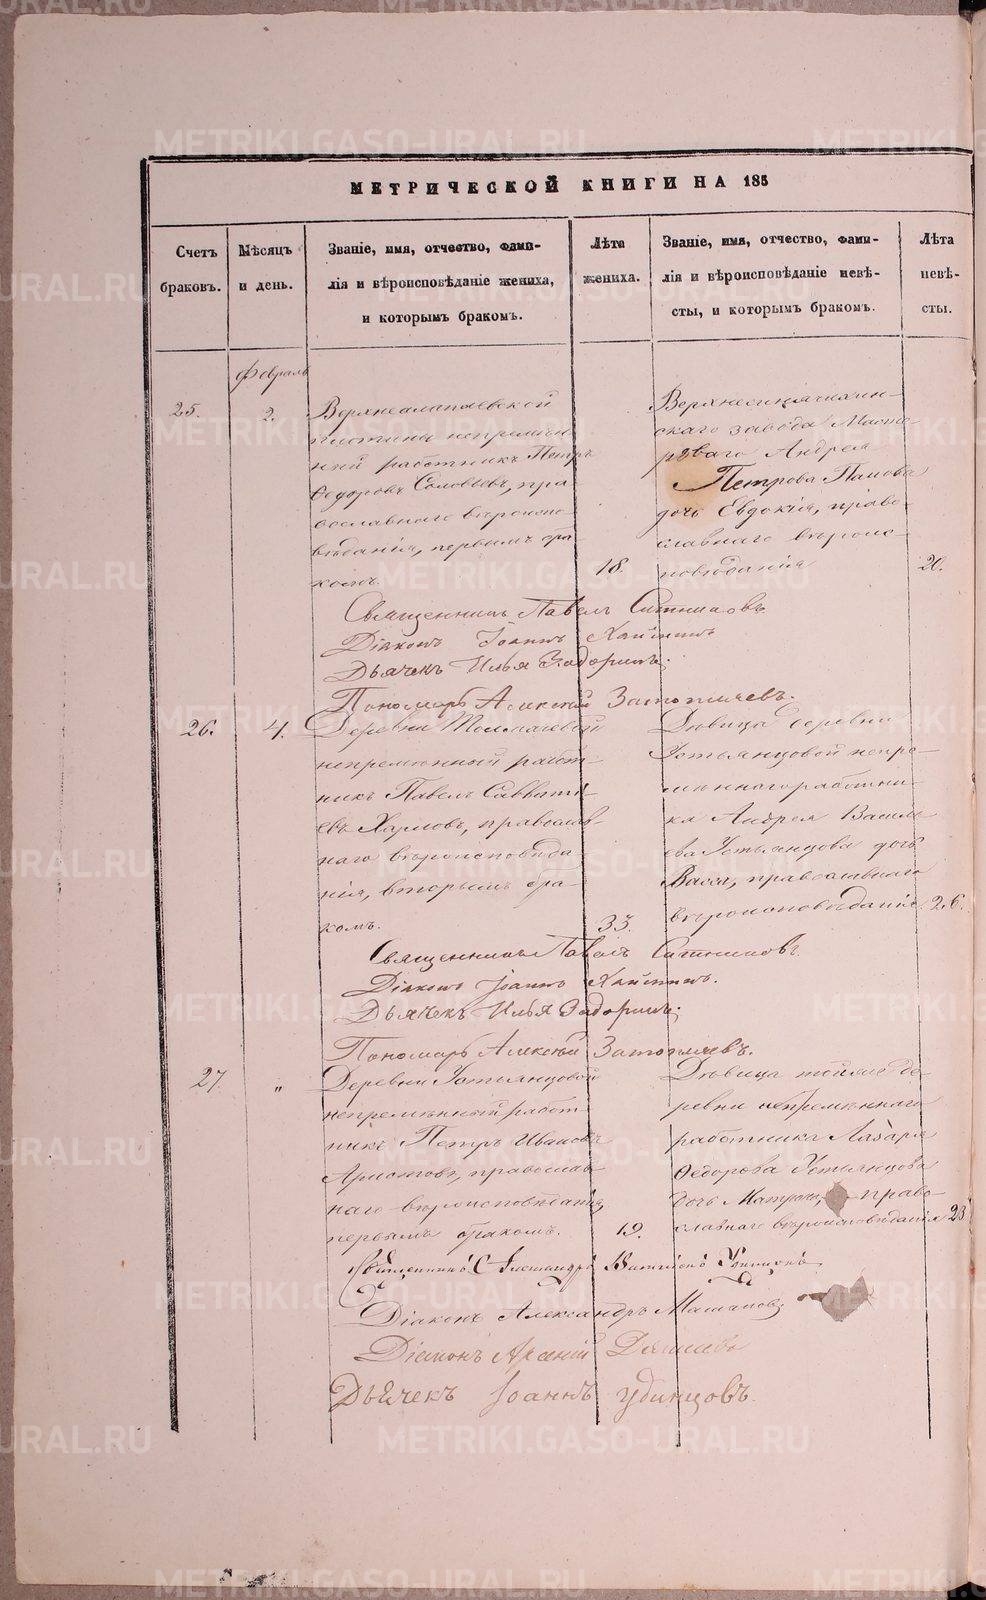 МЕТРИЧЕСКОЙ КНИГИ НА 185
Счетъ браковъ.
Мѣсяцъ и день.
Званіе, имя, отчество, фами-
лія и вѣроисповѣданіе жениха,
и которымъ бракомъ.
Лѣта жениха.
Званіе, имя, отчество, фами-
лія и вѣроисповѣданіе невѣ-
сты, и которымъ бракомъ.
Лѣта невѣ-
сты.
Февраль
25.
2.
Верхнеалапаевской
плотины непремѣн
ный работникъ Петръ
Ѳедоровъ Соловьевъ, пра
вославнаго вѣроиспо
вѣданія, первымъ бра
комъ.
18.
скаго завода Масте-
роваго Андрея
Петрова Панова
дочь Евдокія, право
славнаго вѣроис-
повѣданія
20.
Священникъ Павелъ Ситниковъ
Діаконъ Іоаннъ
Дьячекъ Илья Задоринъ;
Пономарь Алексѣй
26.
4.
Деревни Толмачевой
непремѣнный работ-
никъ Павелъ Савватѣ-
евъ православ-
наго вѣроисповѣда
нія, вторымъ бра-
комъ.
33.
Дѣвица деревни
Устьянцовой непре-
мѣннаго работни-
ка Андрея Василь
ева Устьянцова дочь
Васса, православнаго
вѣроисповѣданія.
26.
Священникъ Павелъ Ситниковъ.
Діаконъ Іоаннъ
Дьячекъ Илья Задоринъ;
Пономарь Алексѣй
27.
"
Деревни Устьянцовой
непремѣнный работ-
никъ Петръ Ивановъ
православ-
наго вѣроисповѣданія,
первымъ бракомъ.
19.
Дѣвица тойже де-
ревни непремѣннаго
работника Лазаря
Ѳедорова Устьянцова
дочь Матрона, право-
славнаго вѣроисповѣданія
23
Священникъ Александръ
Діаконъ Александръ
Діаконъ Арсеній
Дьячекъ Іоаннъ Удинцовъ.
METRIKI.GASO-URAL.RU